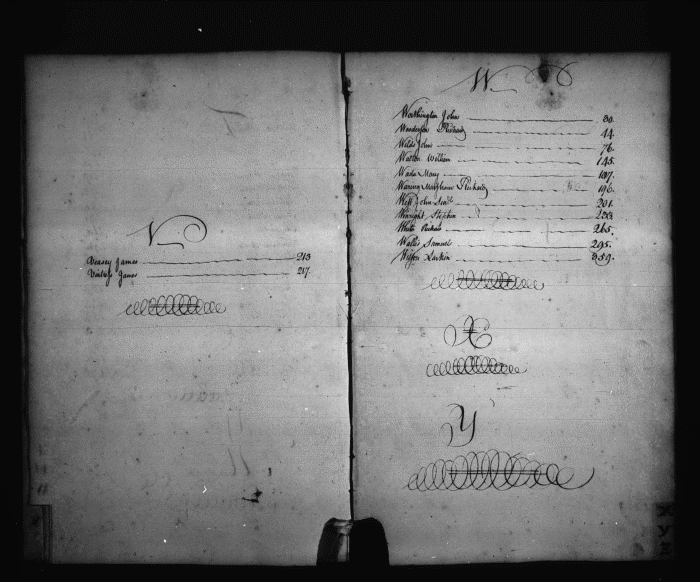 V
Veasey James 213
James 217.
W
Worthington John 30.
Wonderson Richard 44
Wilds John 76.
Watson William 145.
Wade Mary 187.
Waring Marsham Richard 196.
West John Senr. 201.
Winright Stephen
White Richard 265.
Wallis Samuel 295.
Wilson Larkin 359.
X
Y
X Y Z